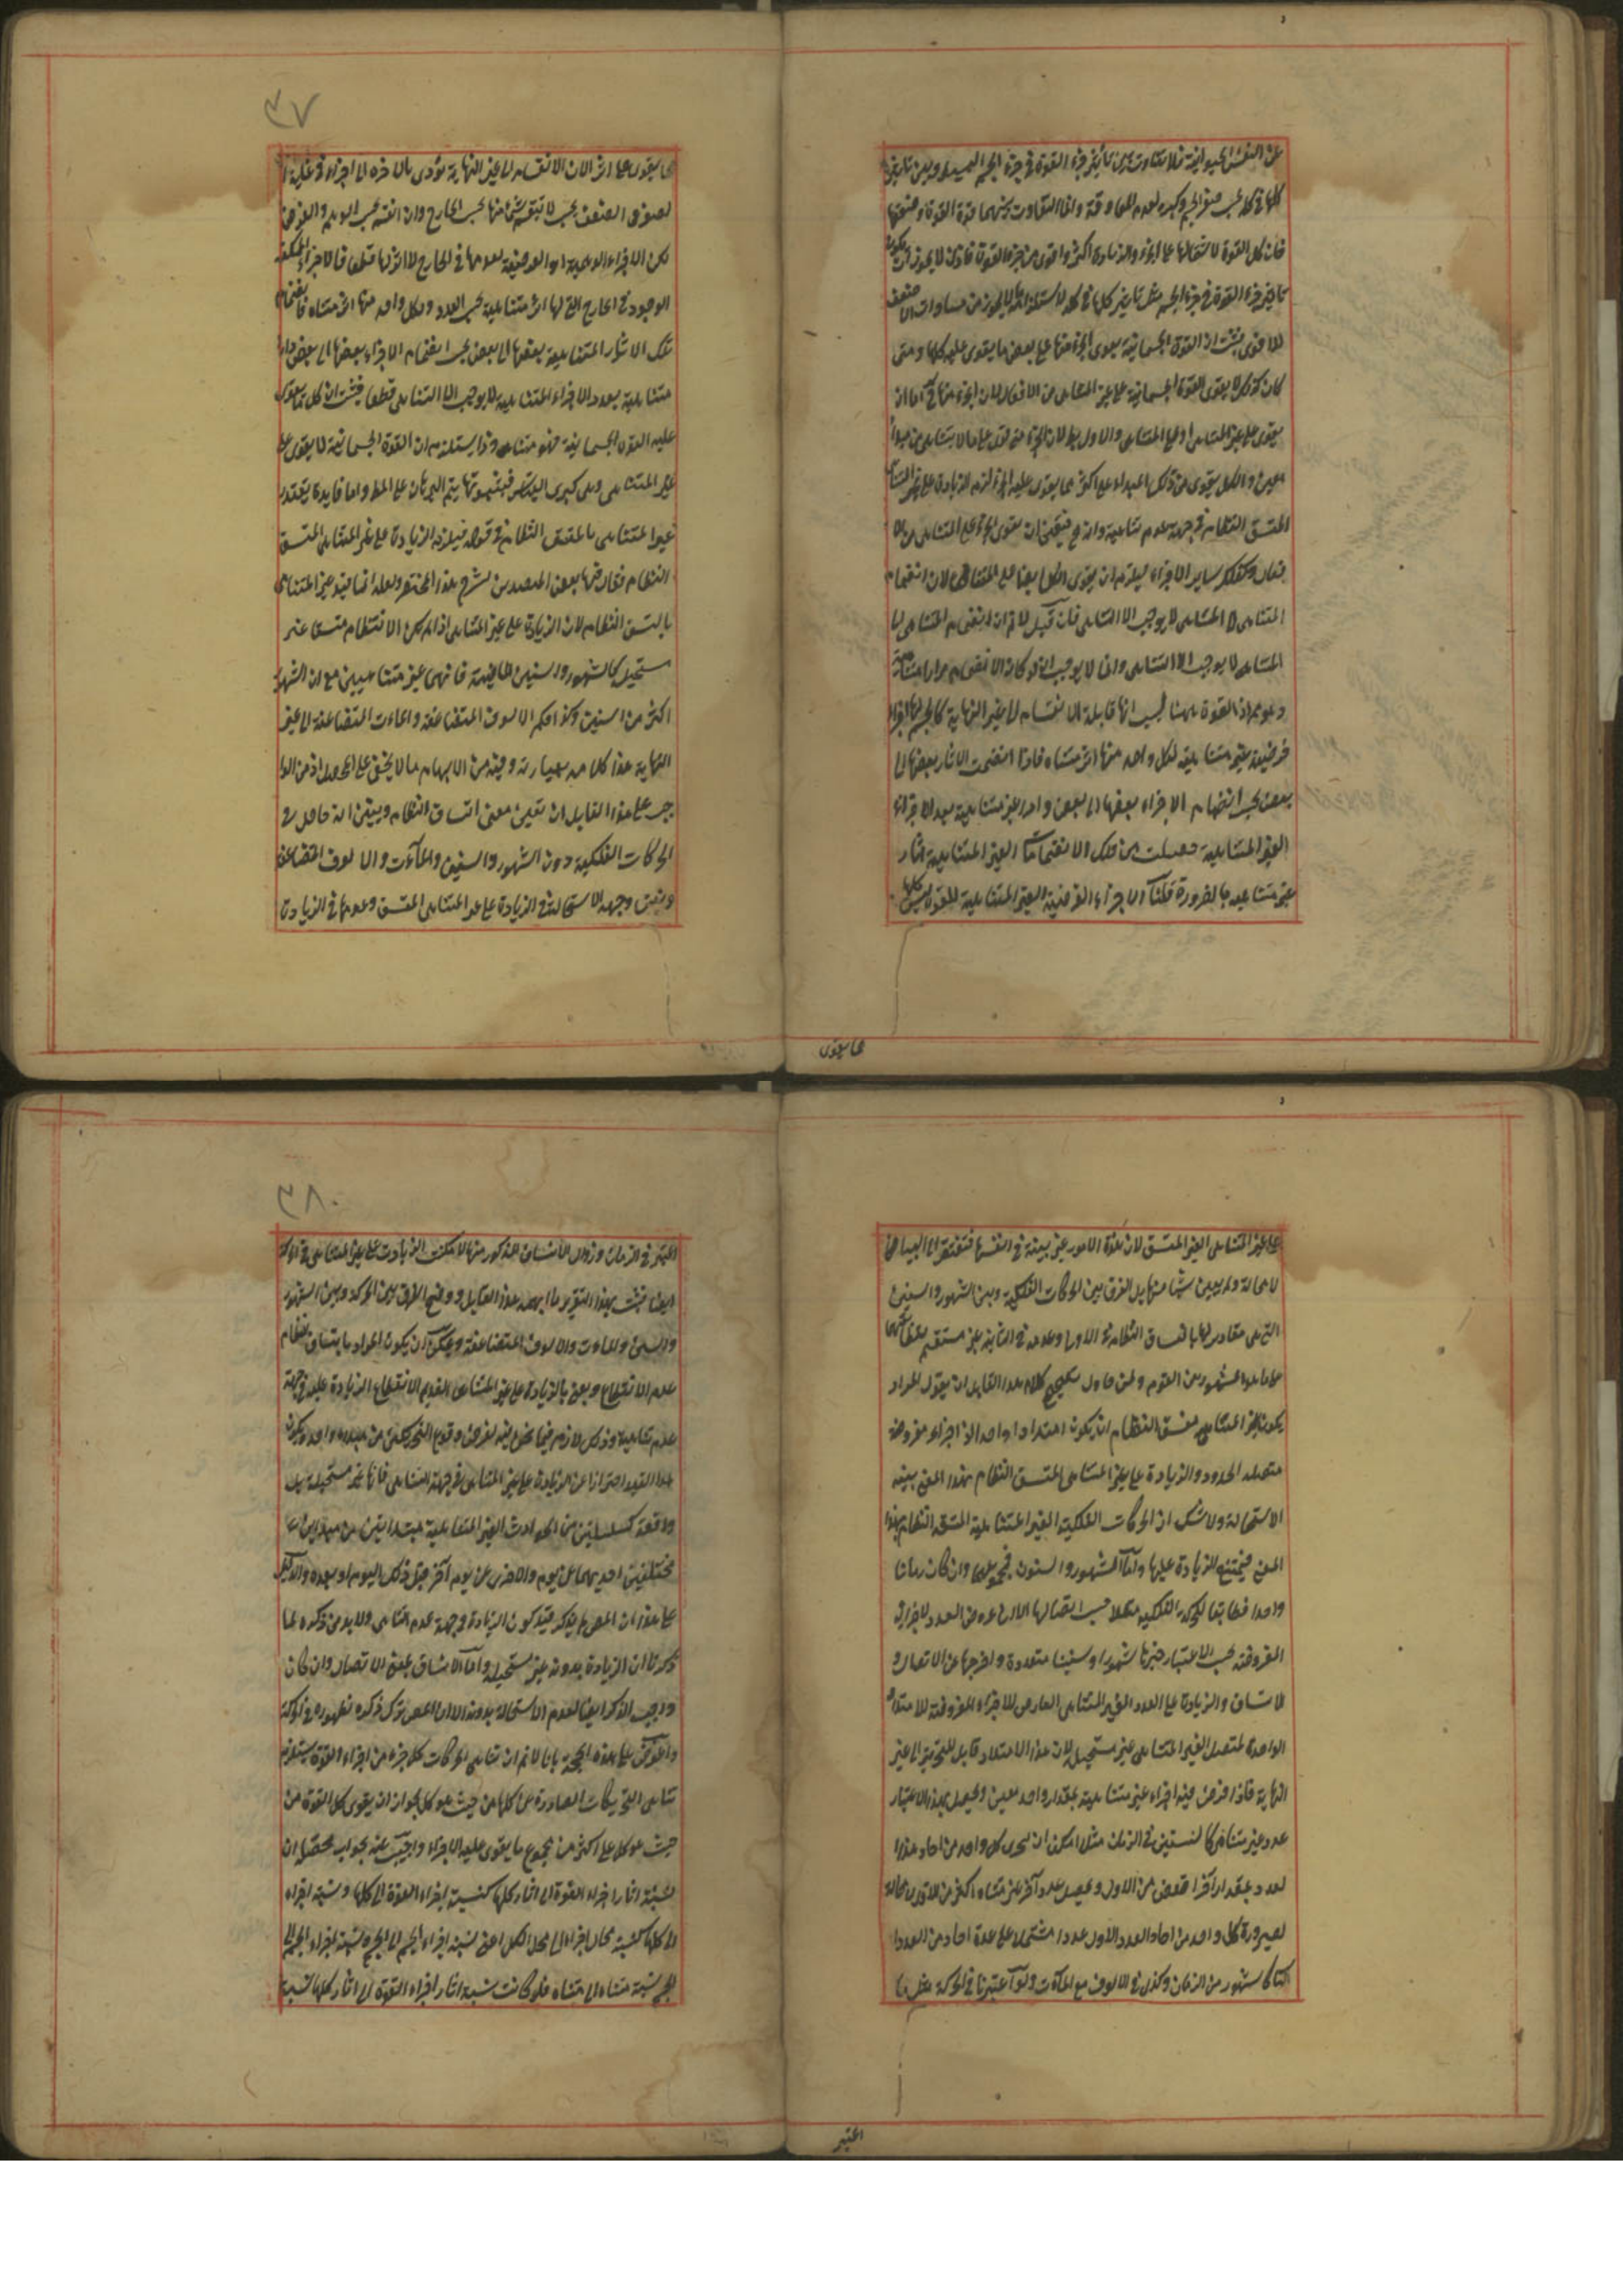 عن النفس الحيوانية فلا تتفاوت بين تأثير جزء القوة في جزء الجسم وبين تأثير
كلها في كله بحسب صغر الجسم وكبره لعدم المعاوقة وانما التفاوت بينهما قوة القوة وضعفها
فان كل القوة لاشتمالها على الجزء والزيادة اكثر واقوى من جزء القوة فاذن لا يجوز ان يكون
تاثير جزء القوة في جزء الجسم مثل تاثير كلها في كله لاستلزامه لا يجوز من مساواة الاضعف
للاقوى فثبت ان القوة الجسمانية يقوى الجزء منها على بعض ما يقوى عليه كلها ومتى
كان كذلك لا يقوى القوة الجسمانية على غير المتناهى من الافعال لان الجزء منها اما ان
يقوى على غير المتناهى او على المتناهى والاول باطل لان الجزء متى قوى على ما لا يتناهى من مبدأ
معين والكل يقوى من ذلك المبداء على اكثر مما يقوى عليه الجزء لزم الزيادة على غير المتناهى
المتسق النظام في جهة عدم تناهيه وانه مح فتعين ان يقوى الجزء على المتناهى من الا
فعال وكذلك ساير الاجزاء فيلزم ان يقوى الكل ايضا على المتناهى لان انضمام
المتناهى الى المتناهى لا يوجب اللا تناهى فان قيل لا نم ان انضمام المتناهى الى
المتناهى لا يوجب اللا تناهى وانما لا يوجب ان لو كان الانضمام مرارا متناهية
وهو مم اذ القوة ههنا لجسم انها قابلة للانقسام الى غير النهاية كالجسم لها اجزاء
فرضية غير متناهية لكل واحد منها اثر متناه فاذا انضمت الاثار بعضها الى
بعض بحسب انضمام الاجزاء بعضها الى بعض وادوار غير متناهية بعدد الاجزاء
الغير المتناهية حصلت من تلك الانضمامات الغير المتناهية اثار
غير متناهية بالضرورة قلنا الاجزاء الفرضية الغير المتناهية للقوة ليس كلها
مما يقوى
٣٧
مما يقوى على اثر لان الانقسام الى غير النهاية تؤدى بالاخرة الى اجزاء في غاية
الصغر والضعف بحيث لا تبقى شيئا منها بحسب الخارج وان انقسم بحسب الوهم والفرض
لكن الاجزاء الوهمية او الفرضية لعدمها في الخارج لا اثر لها قطعا فالاجزاء الممكنة
الوجود في الخارج التي لها اثر متناهية بحسب العدد ولكل واحد منها اثر متناه فانضمام
تلك الاثار المتناهية بعضها الى بعض بحسب انضمام الاجزاء بعضها الى بعض مرارا
متناهية بعدد الاجزاء المتناهية لا يوجب اللا تناهى قطعا فثبت ان كل ما يقوى
عليه القوة الجسمانية فهو متناه وذا يستلزم ان القوة الجسمانية لا يقوى على
غير المتناهى وهى كبرى القياس فبثبوتها يتم البرهان على المط واما فايدة تقييد
غير المتناهى بالمتسق النظام في قوله فيلزم الزيادة على غير المتناهى المتسق
النظام فقال فيها بعض المتصدين لشرح هذا المختصر ولعله انما قيد غير المتناهى
بالمتسق النظام لان الزيادة على غير المتناهى اذا لم يكن الانتظام متسقا غير
مستحيل كالشهور والسنين الماضية فانهما غير متناهيين مع ان الشهور
اكثر من السنين وكذا حكم الالوف المتضاعفة والمآت المتضاعفة الى غير
النهاية هذا كلامه بعبارته وفيه من الابهام ما لا يخفى على المحصل اذ من الوا
جب على هذا القايل ان يتعين معنى اتساق النظام ويبين انه حاصل في
الحركات الفلكية دون الشهور والسنين والمآت والالوف المتضاعفة
ويبين وجه الاستحالة في الزيادة على غير المتناهى المتسق وعدمها في الزيادة
على غير المتناهى الغير المتسق لان هذه الامور غير بينة في انفسها فتفتقر الى البيان
لا محالة ولم يبين شيئا منها بل الفرق بين الحركات الفلكية وبين الشهور والسنين
التي هى مقادير لها باتساق النظام في الاولى وعدمه في الثانية غير مستقيم
على ما هو المشهور من القوم ولمن حاول تصحيح كلام هذا القايل ان يقول المراد
بكون غير المتناهى متسق النظام ان يكون امتدادا واحدا ذا اجزاء مفروضة
متصلة الحدود والزيادة على غير المتناهى المتسق النظام بهذا المعنى بينة
الاستحالة ولا شك ان الحركات الفلكية الغير المتناهية المتسقة النظام بهذا
المعنى فيمتنع الزيادة عليها واما الشهور والسنون فمجموعها وان كان زمانا
واحدا مطابقا للحركة الفلكية متصلا حسب اتصالها الا ان عروض العدد لاجزائه
المفروضة بحسب الاعتبار صيرها شهورا وسنينا متعددة واخرجها عن الاتصال و
الاتساق والزيادة على العدد الغير المتناهى العارض للاجزاء المفروضة للامتداد
الواحد المتصل الغير المتناهى غير مستحيل لان هذا الامتداد قابل للتجزية الى غير
النهاية فاذا فرض فيه اجزاء غير متناهية بمقدار واحد معين وحصل بهذا الاعتبار
عدد غير متناه كالسنين في الزمان مثلا امكن ان يجزى كل واحد من احاد هذا
العدد بمقدار آخر انقص من الاول ويحصل عدد آخر غير متناه اكثر من الاول لا محالة
لصيرورة كل واحد من احاد العدد الاول عددا مشتملا على عدة احاد من العدد
الثاني كالشهور من الزمان وكذلك في الالوف مع المآت ولو اعتبرنا في الحركة مثل ما
اعتبر
٣٨
اعتبر في الزمان وزوال الاتساق المذكور منها لامكنت الزيادة على غير المتناهى في الحركة
ايضا فثبت بهذا التقرير ما ابهمه هذا القايل ووضح الفرق بين الحركة وبين الشهور
والسنين والمآت والالوف المتضاعفة ويمكن ان يكون المراد باتساق النظام
عدم الانقطاع ويعنى بالزيادة على غير المتناهى العديم الانقطاع الزيادة عليه في جهة
عدم تناهيه وذلك لازم فيما نحن فيه لفرض وقوع التحريكين من مبدء واحد ويكون
هذا القيد احترازا عن الزيادة على غير المتناهى في جهة التناهى فانها غير مستحيلة بل
واقعة كسلسلتين من الحوادث الغير المتناهية مبتدائين من مبداين
مختلفين احديهما من يوم والاخرى من يوم آخر قبل ذلك اليوم او بعده والدليل
على هذا ان المص لم يذكر قيد كون الزيادة في جهة عدم التناهى ولا بد من ذكره لما
ذكرنا ان الزيادة بدونه غير مستحيل واما الاتساق بمعنى الاتصال وان كان
واجب الذكر ايضا لعدم الاستحالة بدونه الا ان المص ترك ذكره لظهوره في الحركة
واعترض على هذه الحجة بانا لا نم ان تناهى الحركات لكل جزء من اجزاء القوة يستلزم
تناهى التحريكات الصادرة عن كلها من حيث هو كل لجواز ان يقوى كل القوة من
حيث هو كل على اكثر من مجموع ما يقوى عليه الاجزاء واجيب عنه بجواب محصله ان
نسبة اثار اجزاء القوة الى اثار كلها كنسبة اجزاء القوة الى كلها ونسبة اجزاء
الى كلها كنسبة محال اجزاء الى محل الكل اعنى نسبة اجزاء الجسم الى الجسم ونسبة اجزاء الجسم الى
الجسم نسبة متناه الى متناه فلو كانت نسبة اثار اجزاء القوة الى اثار كلها نسبة